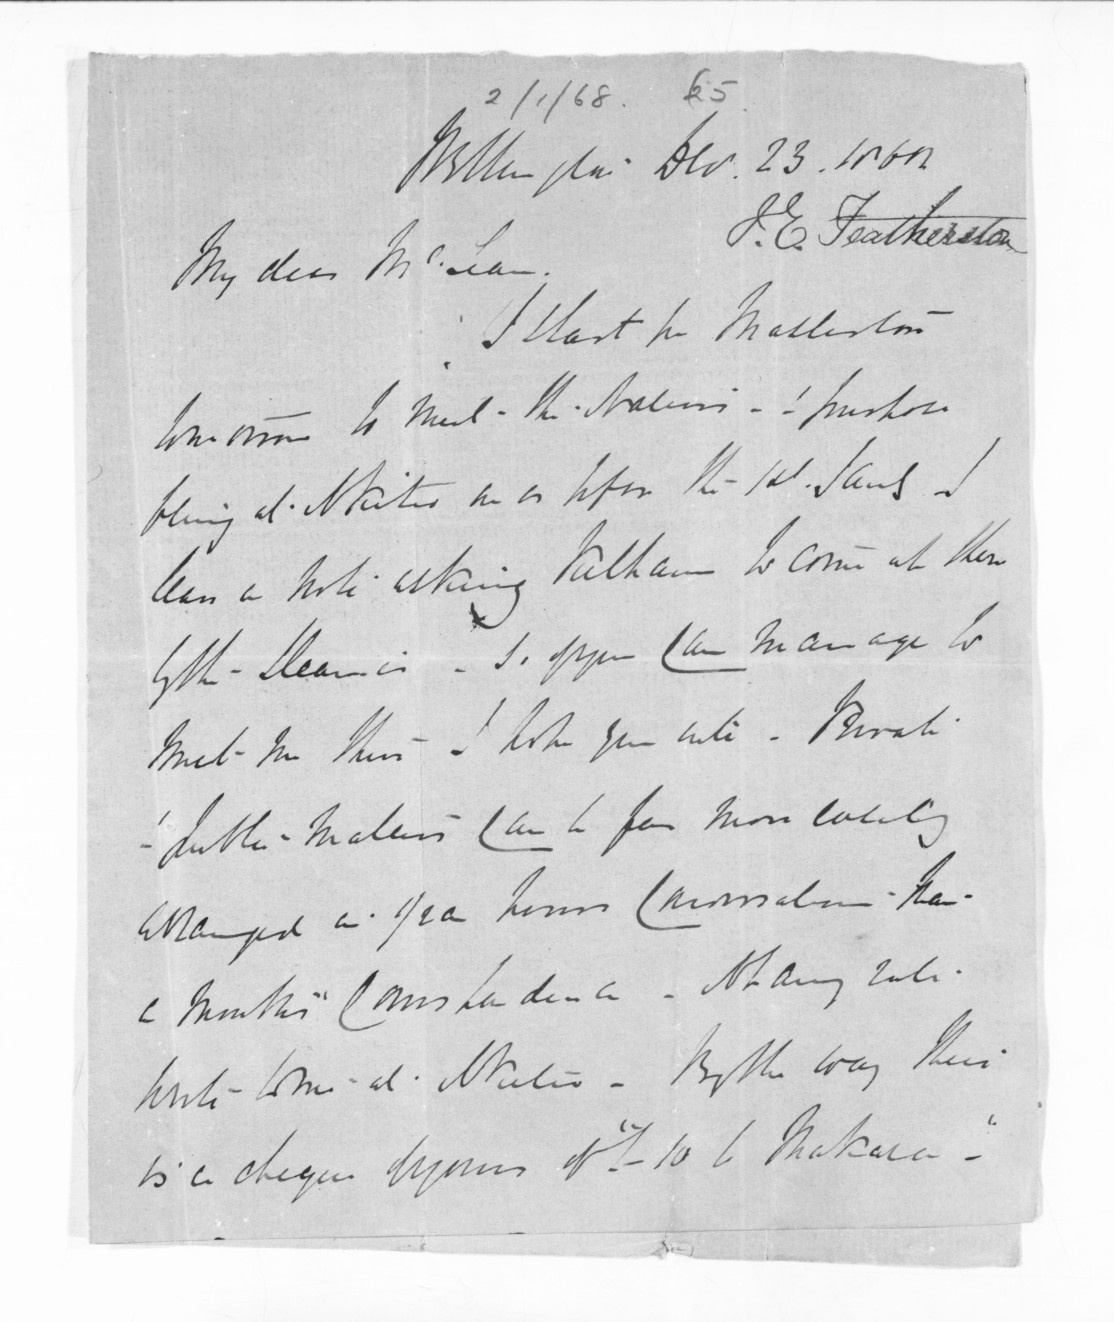 2/1/68. 25
Wellington Dec. 23. 1868
J. E. Featherston
My dear McLean.
I start for Masterton
tomorrow to meet the Natives - I purpose
being at Napier on or before the 1st. Jany - I
leave a note asking to come at there
by the Steamer - If you can manage to
meet me there - I hope you will - Private
& Public matters can be far more easily
arranged in half an hours Conversation than
a months Correspondence - At any rate
write to me at Napier - By the way there
is a cheque of yours of "£10 to Makara -"